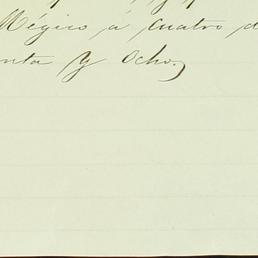 Mégico á cuatro d
enta y ocho,